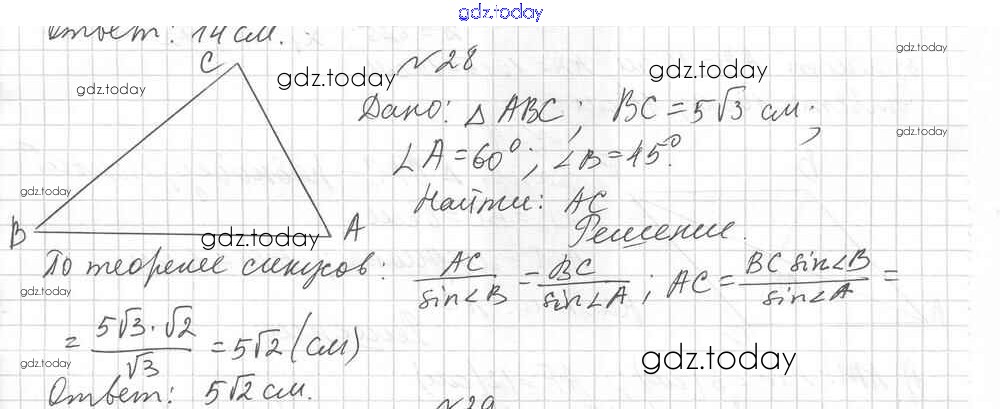 gdz.today
Ответ: 14 см.
C
gdz.today
gdz.today
№28
gdz.today
gdz.today
Дано: △ ABC; BC = 5√3 см;
∠A = 60°; ∠B = 45°.
gdz.today
gdz.today
Найти: AC
B
A
gdz.today
Решение.
По теореме синусов: AC/sin∠B = BC/sin∠A; AC = BC sin∠B/sin∠A =
gdz.today
= 5√3·√2/√3 = 5√2 (см)
gdz.today
gdz.today
Ответ: 5√2 см.
№29